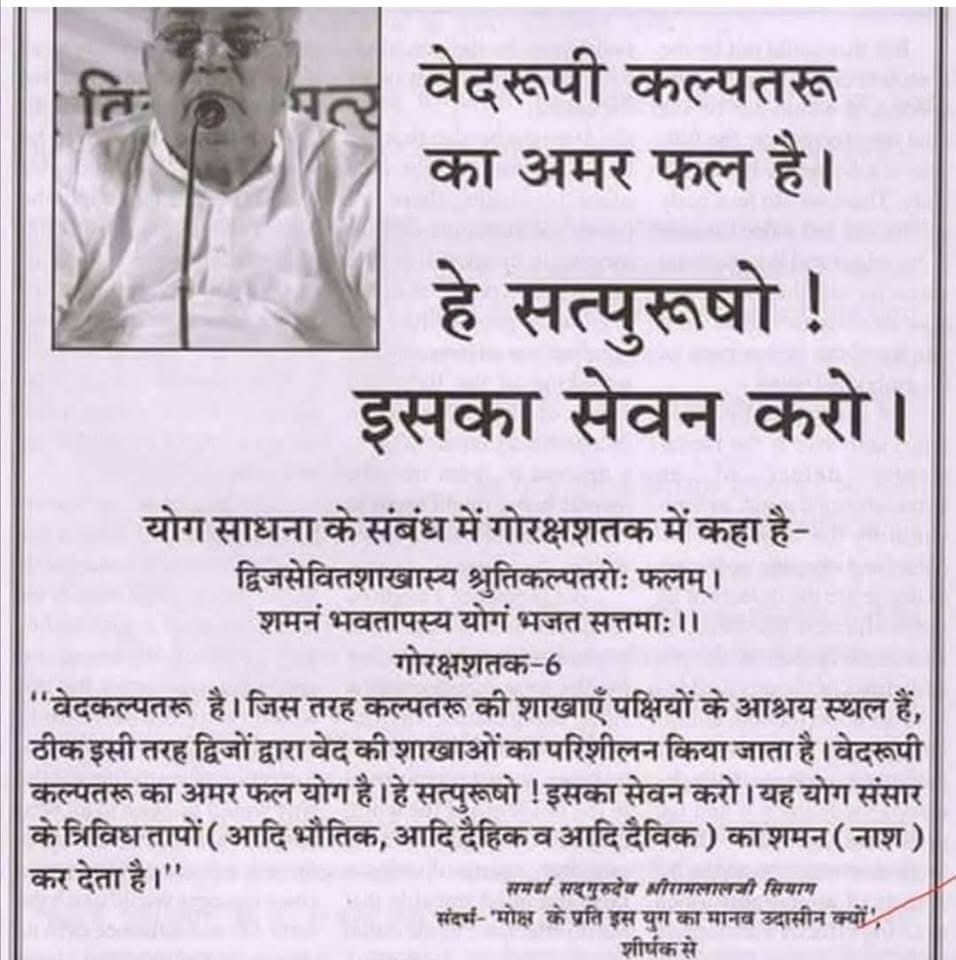 वेदरूपी कल्पतरू
का अमर फल है।
हे सत्पुरूषो !
इसका सेवन करो।
योग साधना के संबंध में गोरक्षशतक में कहा है-
द्विजसेवितशाखास्य श्रुतिकल्पतरोः फलम्।
शमनं भवतापस्य योगं भजत सत्तमाः।।
गोरक्षशतक-6
‘‘वेदकल्पतरू है। जिस तरह कल्पतरू की शाखाएँ पक्षियों के आश्रय स्थल हैं,
ठीक इसी तरह द्विजों द्वारा वेद की शाखाओं का परिशीलन किया जाता है। वेदरूपी
कल्पतरू का अमर फल योग है। हे सत्पुरूषो ! इसका सेवन करो। यह योग संसार
के त्रिविध तापों ( आदि भौतिक, आदि दैहिक व आदि दैविक ) का शमन ( नाश )
कर देता है।’’
समर्थ सद्गुरुदेव श्रीरामलालजी सियाग
संदर्भ- ‘मोक्ष के प्रति इस युग का मानव उदासीन क्यों’,
शीर्षक से